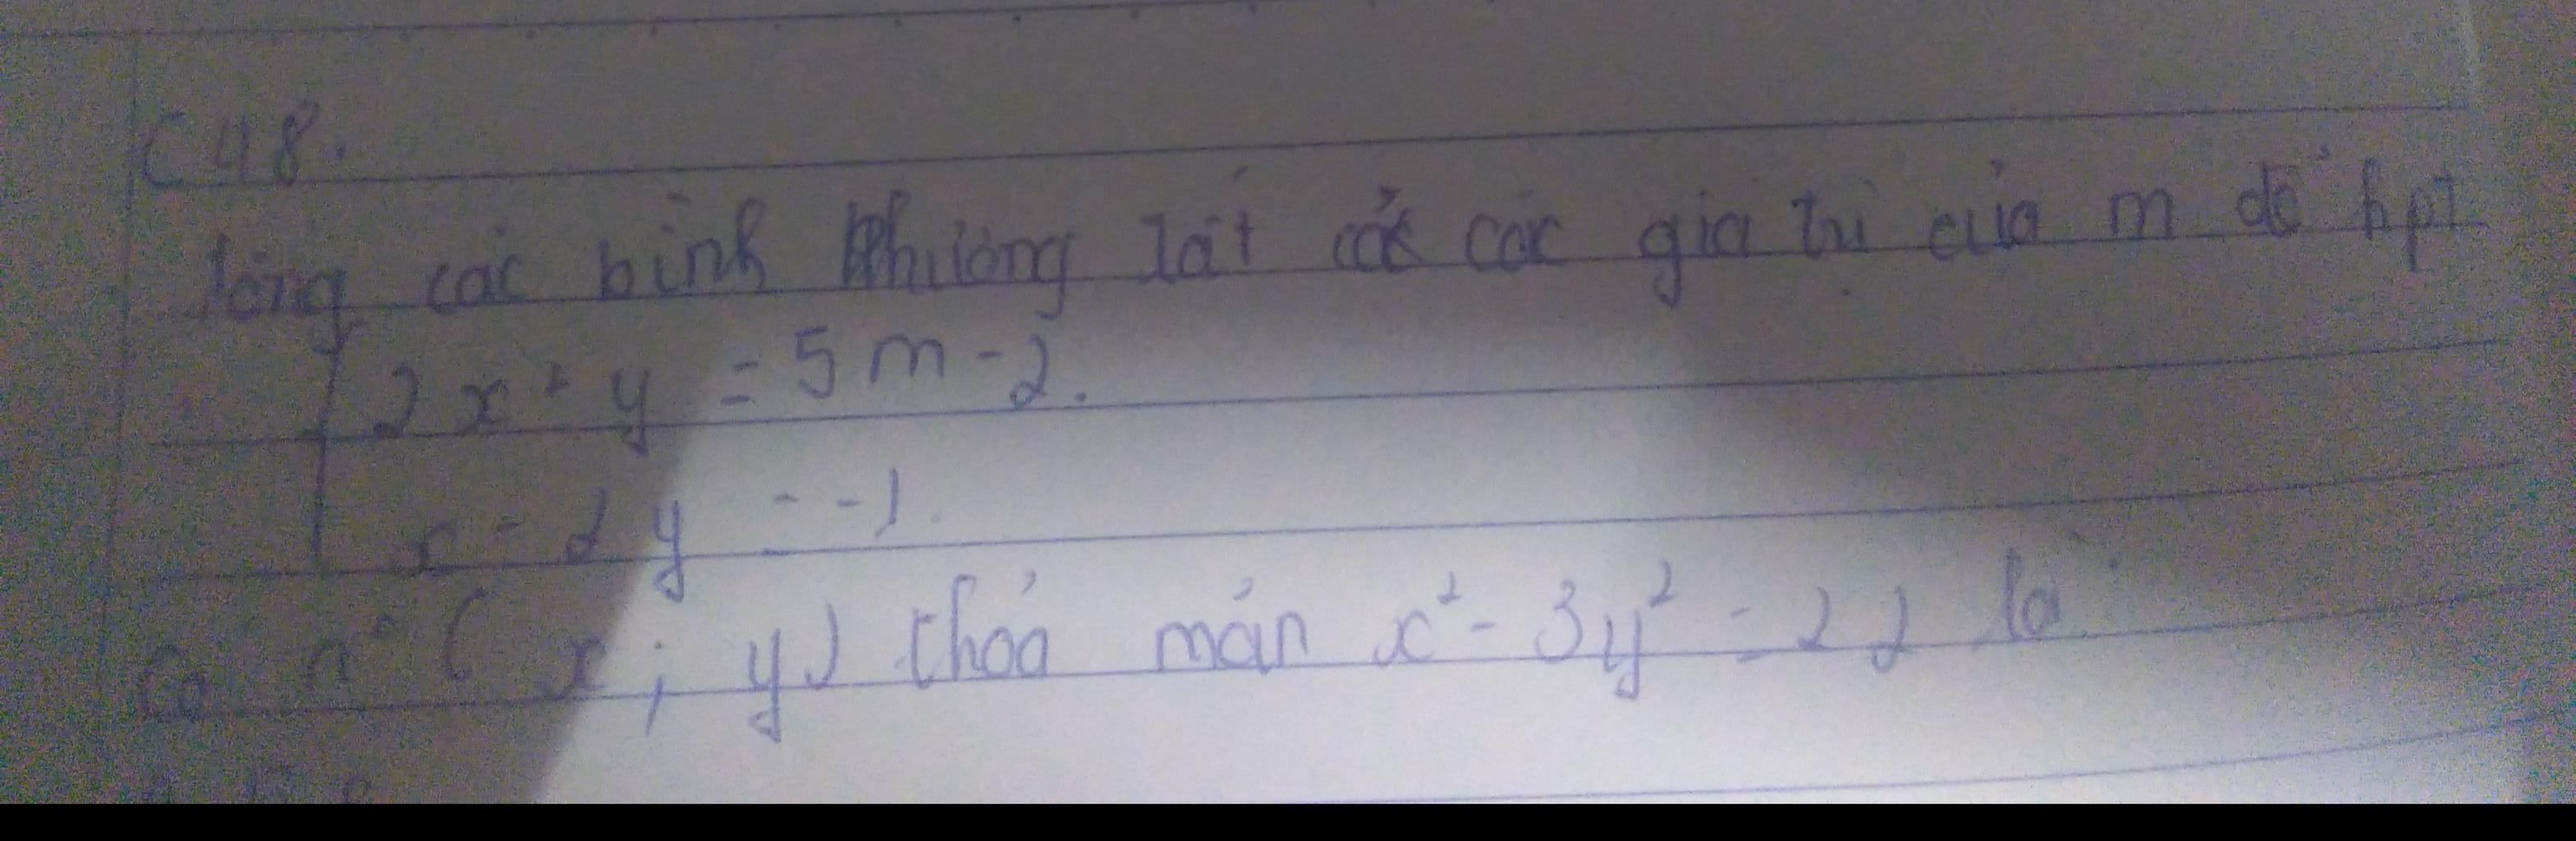 C48.
Tổng các bình phương tất cả các giá trị của m để hpt
{ 2x + y = 5m - 2.
x - 2y = -1.
Có n° (x; y) thoả mãn x² - 3y² = 22 là